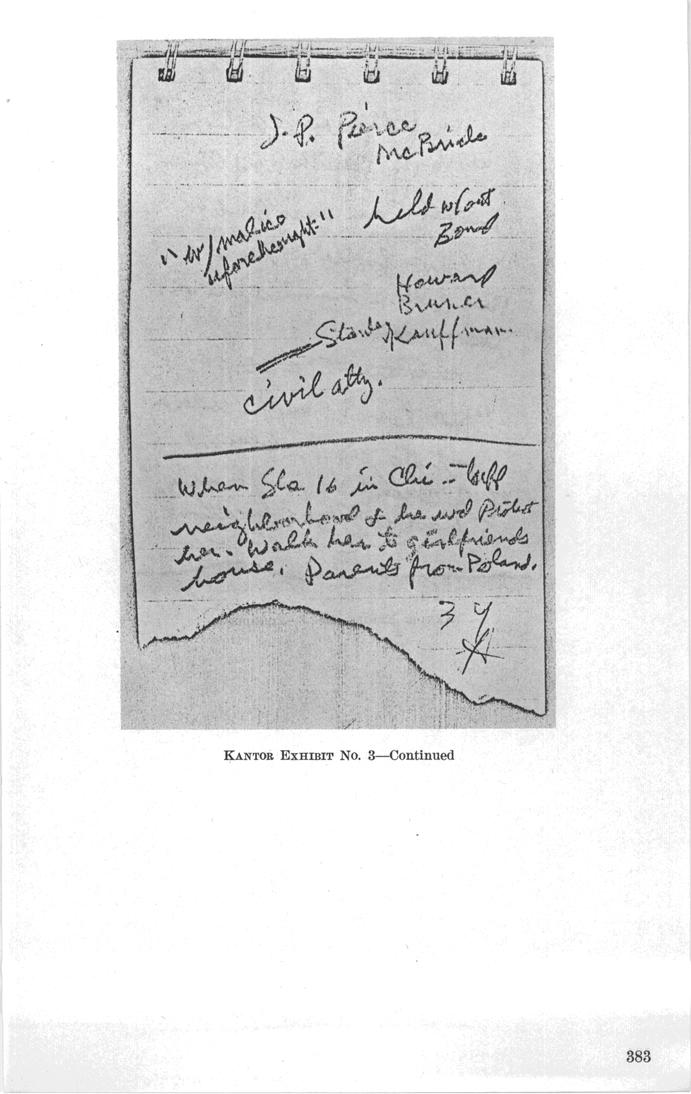 J. P. Pierce
McBride
held w/out
Bond
"w/malice
aforethought."
Howard
Bruner
Stanley Kauffman.
civil atty.
When She 16 in Chi – tuff
neighborhood & he wd Protect
her. Walk her to girlfriends
house. Parents from Poland.
3
KANTOR EXHIBIT No. 3—Continued
383